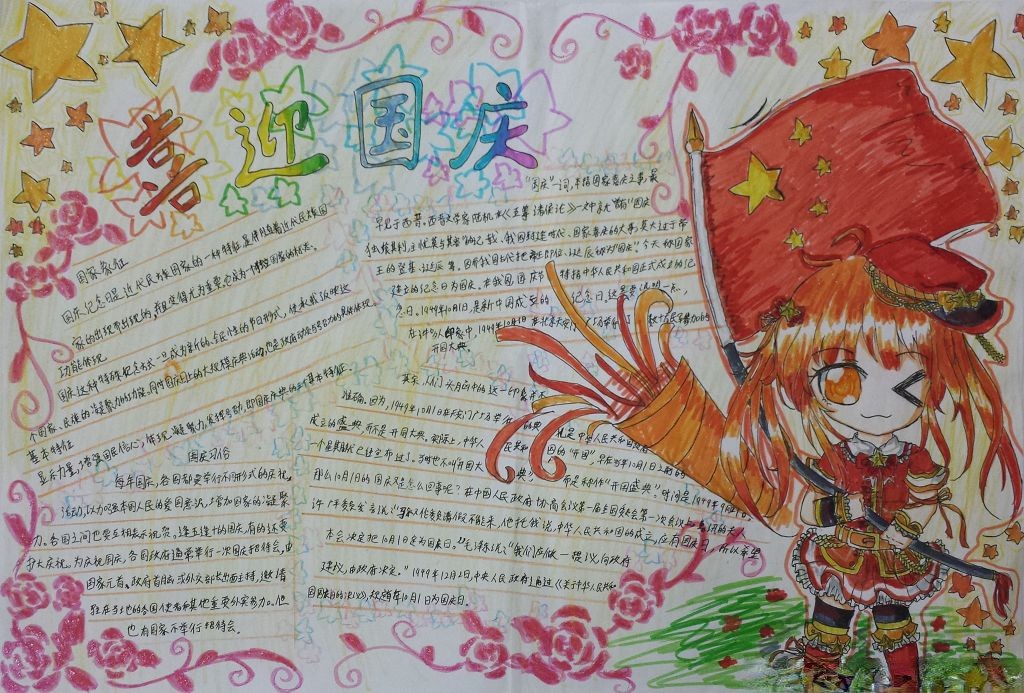 喜迎国庆
国家象征
国庆纪念日是近代民族国家的一种特征,是伴随着近代民族国
家的出现而出现的,并且变得尤为重要。它成为一个独立国家的标志,
功能体现
国庆这种特殊纪念方式一旦成为新的、全民性的节日形式,便承载了反映这
个国家、民族的凝聚力的功能。同时国庆日上的大规模庆典活动,也是政府动员与号召力的具体体现。
基本特征
显示力量、增强国民信心,体现凝聚力,发挥号召力,即国庆庆典的三个基本特征
国庆习俗
每年国庆,各国都要举行不同形式的庆祝
活动,以加强本国人民的爱国意识,增加国家的凝聚
力。各国之间也要互相表示祝贺。逢五逢十的国庆,有的还要
扩大庆祝。为庆祝国庆,各国政府通常举行一次国庆招待会,由
国家元首、政府首脑或外交部长出面主持,邀请
驻在当地的各国使者和其他重要外宾参加。但
也有国家不举行招待会。
“国庆”一词,本指国家喜庆之事,最
早见于西晋。西晋文学家陆机在《五等诸侯论》一文中就曾有“国庆
独飨其利,主忧莫与其害”的记载、我国封建时代、国家喜庆的大事,莫大过于帝
王的登基、诞辰等。因而我国古代把皇帝即位、诞辰称为“国庆”。今天称国家
建立的纪念日为国庆。在我国,国庆节特指中华人民共和国正式成立的纪
念日。1949年10月1日,是新中国成立的纪念日,这是要说明一点
在许多人印象中,1949年10月1日在北京天安门广场举行了
开国大典
其实,人们头脑中的这一印象并不
准确。因为,1949年10月1日在天安门广场举行的
成立的盛典,而不是开国大典。实际上,中华人民共和国的“开国”,早在当年10月1日之前的
一个星期就已经宣布过了。当时也不叫开国大典,而是称作“开国盛典”。时间是1949年9月21日。
那么10月1日的国庆又是怎么回事呢?在中国人民政府协商会议第一届全国委员会第一次会议上,
许广平委员发言说:“马叙伦委员请假不能来,他托我说,中华人民共和国的成立,应有国庆日,所以希望
本会决定把10月1日定为国庆日。”毛泽东说:“我们应作一提议,向政府
建议,由政府决定。”1949年12月2日,中央人民政府通过《关于中华人民共和
国国庆日的决议》,规定每年10月1日为国庆日。